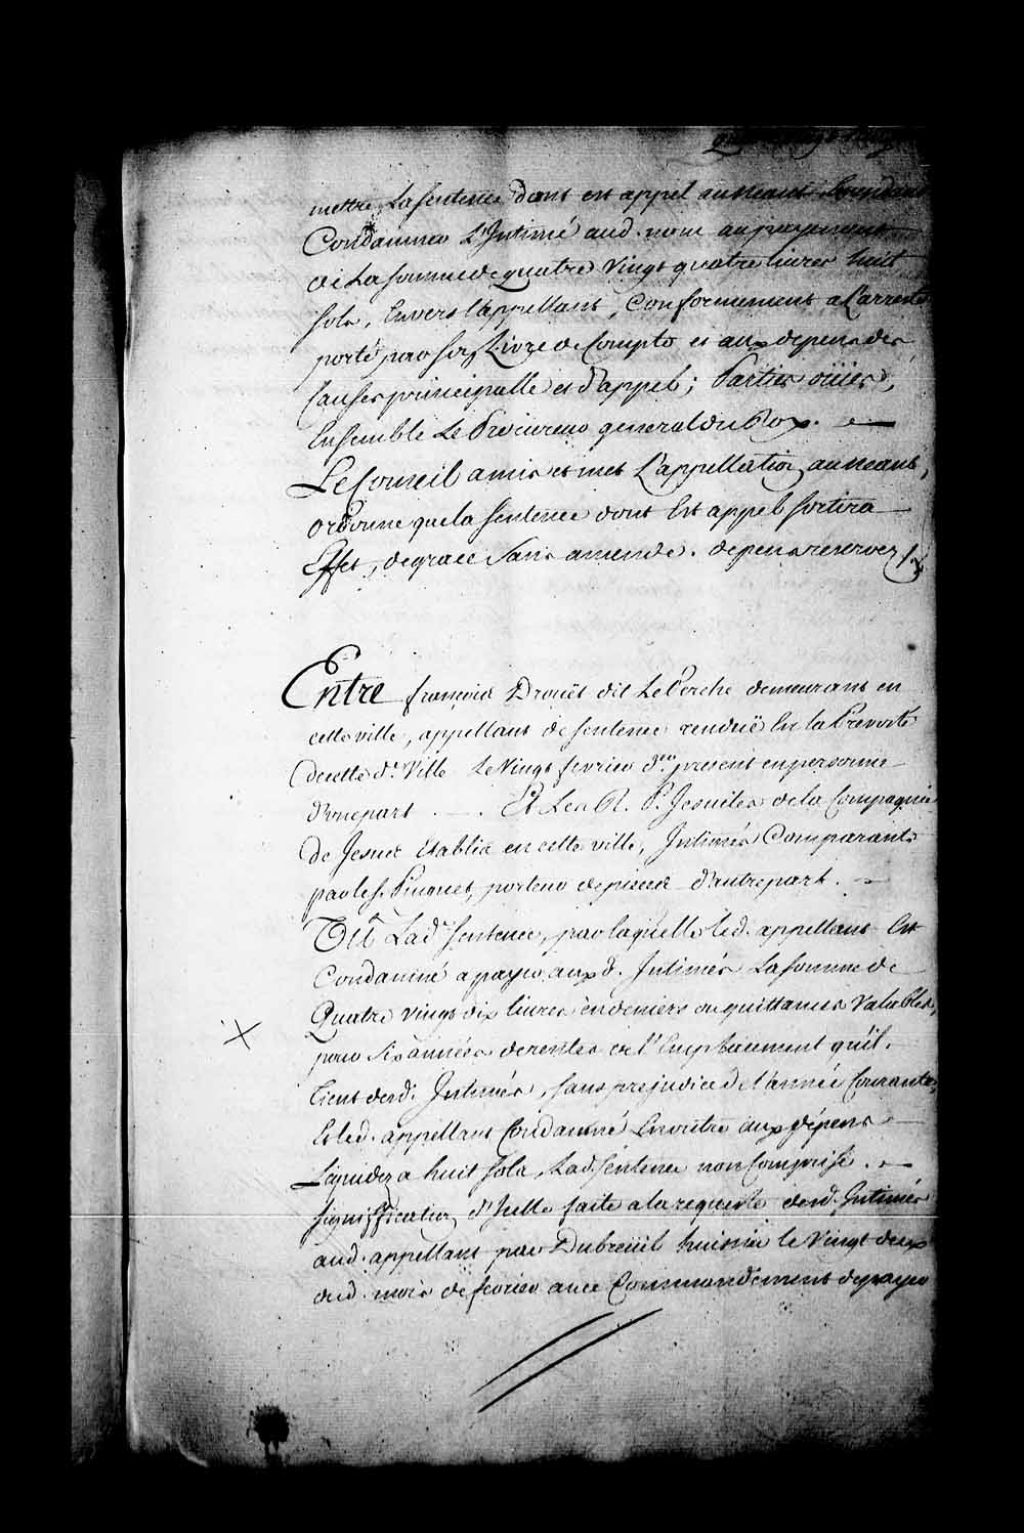 mettre La sentence dont est appel au neant
Condamner L'Intimé aud. nom au payement
de La somme de quatre Vingt quatre livres huit
sols, Envers l'appellant, Conformement a L'arresté
porté par son Livre de Compte et aux depens des
Causes principalle et d'appel; Parties oüies,
Ensemble Le Procureur general du Roy.
Le Conseil a mis et met L'appellation au neant,
ordonne que la sentence dont Est appel sortira
Effet, de grace sans amende. depens reservez

Entre françois Drouët dit Le Perche demeurant en
cette ville, appellant de sentence renduë En la Prevosté
de cette d.e Ville Le Vingt fevrier d.er present en personne
d'une part . — . Et Les R. P. Jesuites de la Compagnie
de Jesus Etablis en cette ville, Intimés Comparants
par le S. Pinguet, porteur de pieces d'autre part. —
Vû Lad. sentence, par laquelle led. appellant Est
Condamné a payer aux d. Intimés La somme de
Quatre vingt dix livres en deniers ou quittances Valables,
pour six années de rentes et l'Emplacement qu'il
tient desd. Intimés, sans prejudice de l'année Courante,
Et led. appellant Condamné En outre aux dépens
Liquidez a huit sols, Lad. sentence non Comprise. —
signiffication d'Icelle faite a la requeste desd. Intimés
aud. appellant par Dubreüil huissier le Vingt deux
dud. mois de fevrier avec Commandement de payer